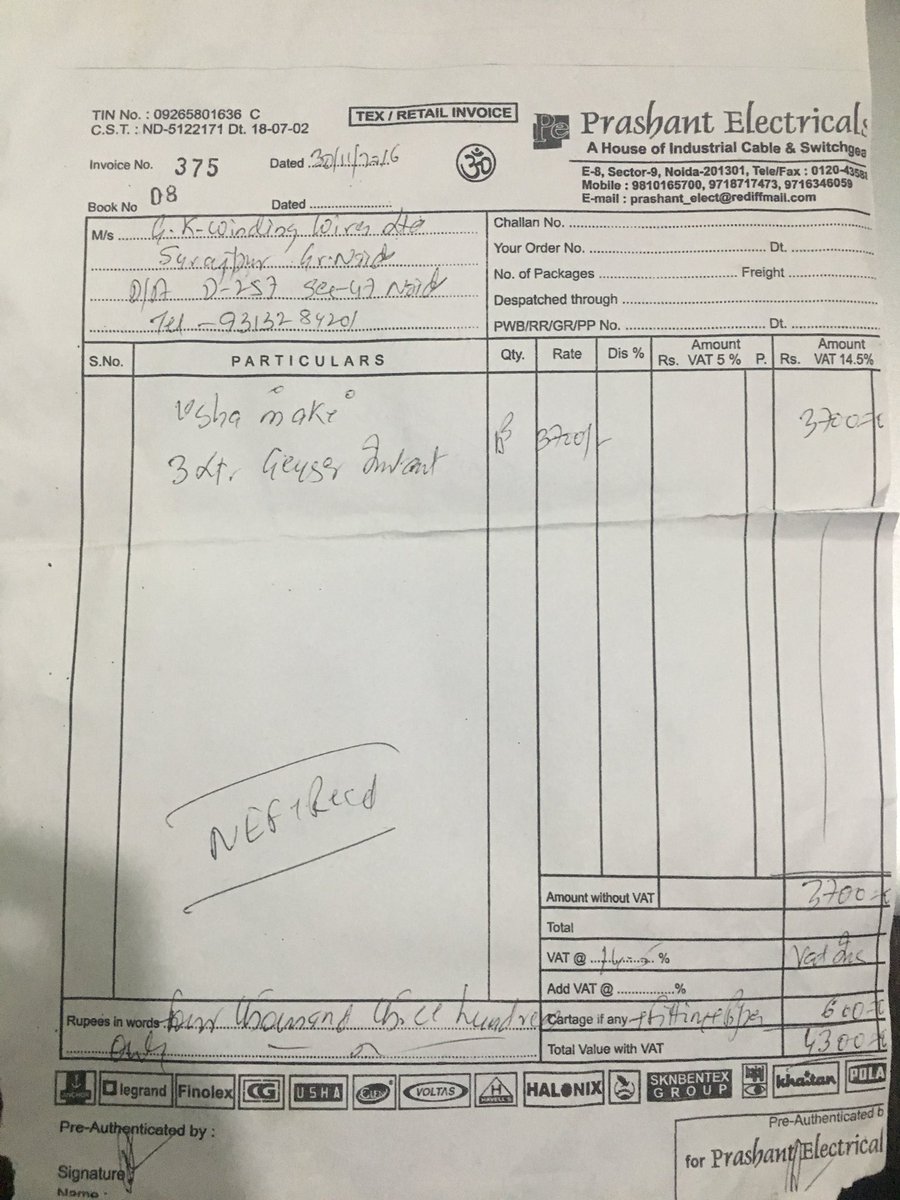 TIN No. : 09265801636 C
C.S.T. : ND-5122171 Dt. 18-07-02
TEX / RETAIL INVOICE
Pe Prashant Electricals
A House of Industrial Cable & Switchgea
E-8, Sector-9, Noida-201301, Tele/Fax : 0120-43581
Mobile : 9810165700, 9718717473, 9716346059
E-mail : prashant_elect@rediffmail.com
Invoice No. 375 Dated 30/11/2016
ॐ
Book No 08 Dated ....................
M/s G.K-Winding Wires Ltd
Surajpur Gr. Noid
D-257 Sec-47 Noid
Tel - 9313284201
Challan No.
Your Order No. Dt.
No. of Packages Freight
Despatched through
PWB/RR/GR/PP No. Dt.
S.No. PARTICULARS Qty. Rate Dis % Amount Rs. VAT 5 % P. Amount Rs. VAT 14.5%
Usha make 3700
3 Lt. Geyser 3700/-
NEFT Recd
Amount without VAT 3700
Total
VAT @ 14.5 % Vat Inc
Add VAT @ ..............%
Rupees in words four thousand three hundred
only
Cartage if any 600
Total Value with VAT 4300
ANCHOR legrand Finolex CG USHA VOLTAS HAVELL'S HALONIX SKNBENTEX GROUP khaitan POLA
Pre-Authenticated by :
Signature
Name :
Pre-Authenticated b
for Prashant Electrical